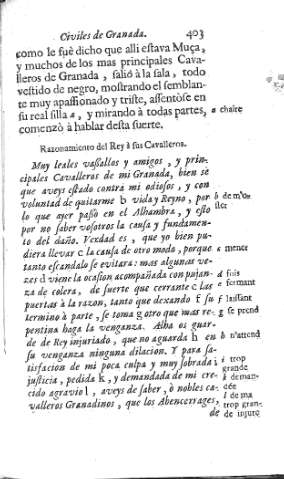 Civiles de Granada. 403
como le fuè dicho que alli estava Muça,
y muchos de los mas principales Cava-
lleros de Granada, saliò à la sala, todo
vestido de negro, mostrando el semblan-
te muy apassionado y triste, assentòse en
su real silla a, y mirando à todas partes, a chaire
comenzò à hablar desta suerte.
Razonamiento del Rey à sus Cavalleros.
Muy leales vassallos y amigos, y prin-
cipales Cavalleros de mi Granada, bien sè
que aveys estado contrà mi odiosos, y con
voluntad de quitarme b vida y Reyno, por b de m'os
lo que ayer passò en el Alhambra, y esto ster
por no saber vosotros la causa y fundamen-
to del daño. Verdad es, que yo bien pu-
diera llevar c la causa de otro modo, porque c mener
tanto escandalo se evitara: mas algunas ve-
zes d viene la ocasion acompañada con pujan-
za de colera, de suerte que cerrante e las e fermant
puertas à la razon, tanto que dexando f su f laissant
termino à parte, se toma g otro que mas re- g se prend
pentina haga la venganza. Alha os guar-
de de Rey injuriado, que no aguarda h en h n'attend
su venganza ninguna dilacion. Y para sa-
tisfacion de mi poca culpa y muy sobrada i i trop
grande
justicia, pedida k, y demandada de mi cre- k deman-
cido agravio l, aveys de saber, ò nobles ca- dée
valleros Granadinos, que los Abencerrages, l de ma
trop gran-
de de injure